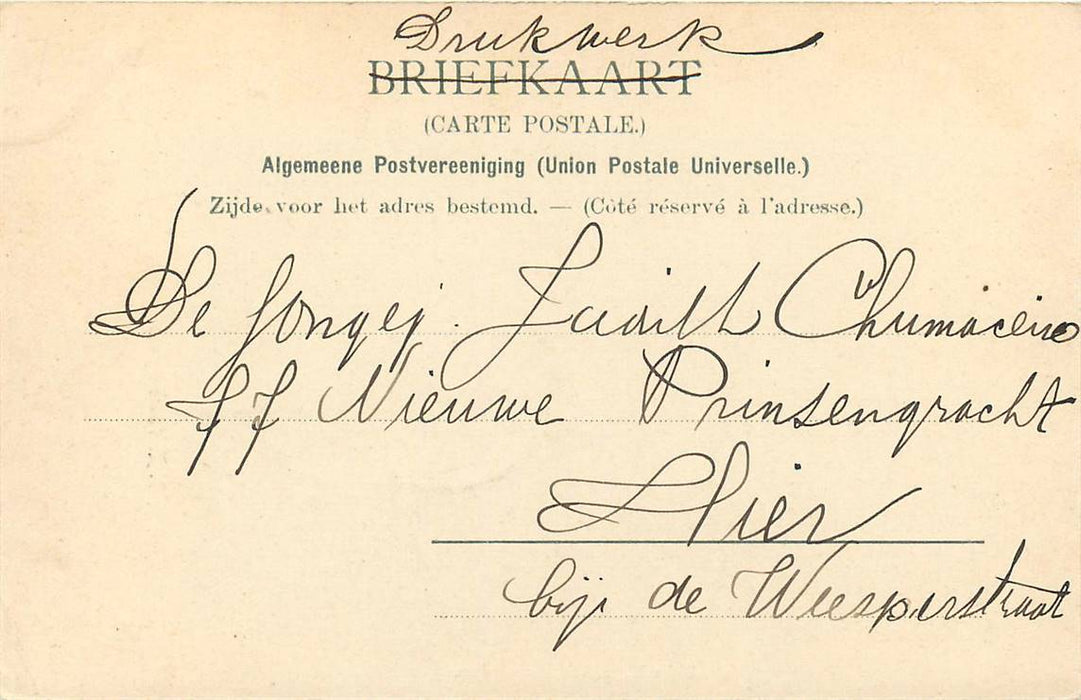 Drukwerk
BRIEFKAART
(CARTE POSTALE.)
Algemeene Postvereeniging (Union Postale Universelle.)
Zijde voor het adres bestemd. — (Côté réservé à l'adresse.)
De Jongej. Judith Chumaceiro
77 Nieuwe Prinsengracht
Hier
bij de Weesperstraat